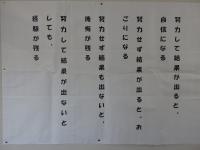 努力して結果が出ると、
自信になる
努力せず結果が出ると、お
ごりになる
努力せず結果も出ないと、
後悔が残る
努力して結果が出ないと
しても、
経験が残る